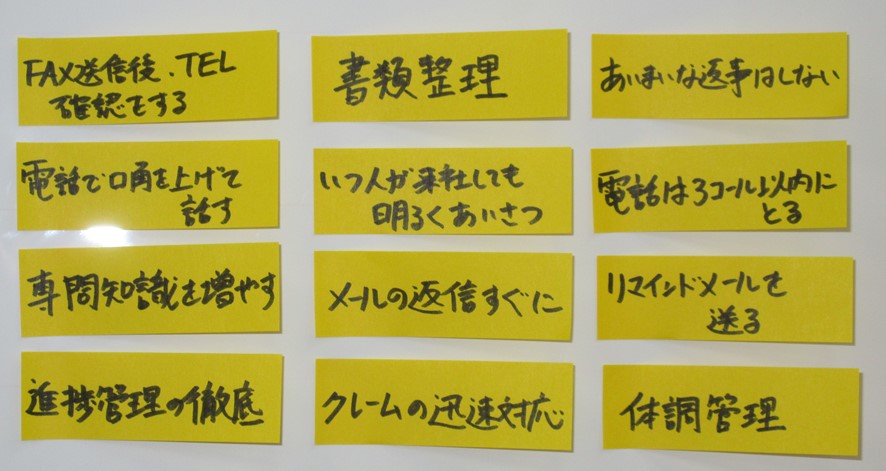 FAX送信後、TEL
確認をする
書類整理
あいまいな返事はしない
電話で口角を上げて
話す
いつ人が来社しても
明るくあいさつ
電話は3コール以内に
とる
専門知識を増やす
メールの返信すぐに
リマインドメールを
送る
進捗管理の徹底
クレームの迅速対応
体調管理